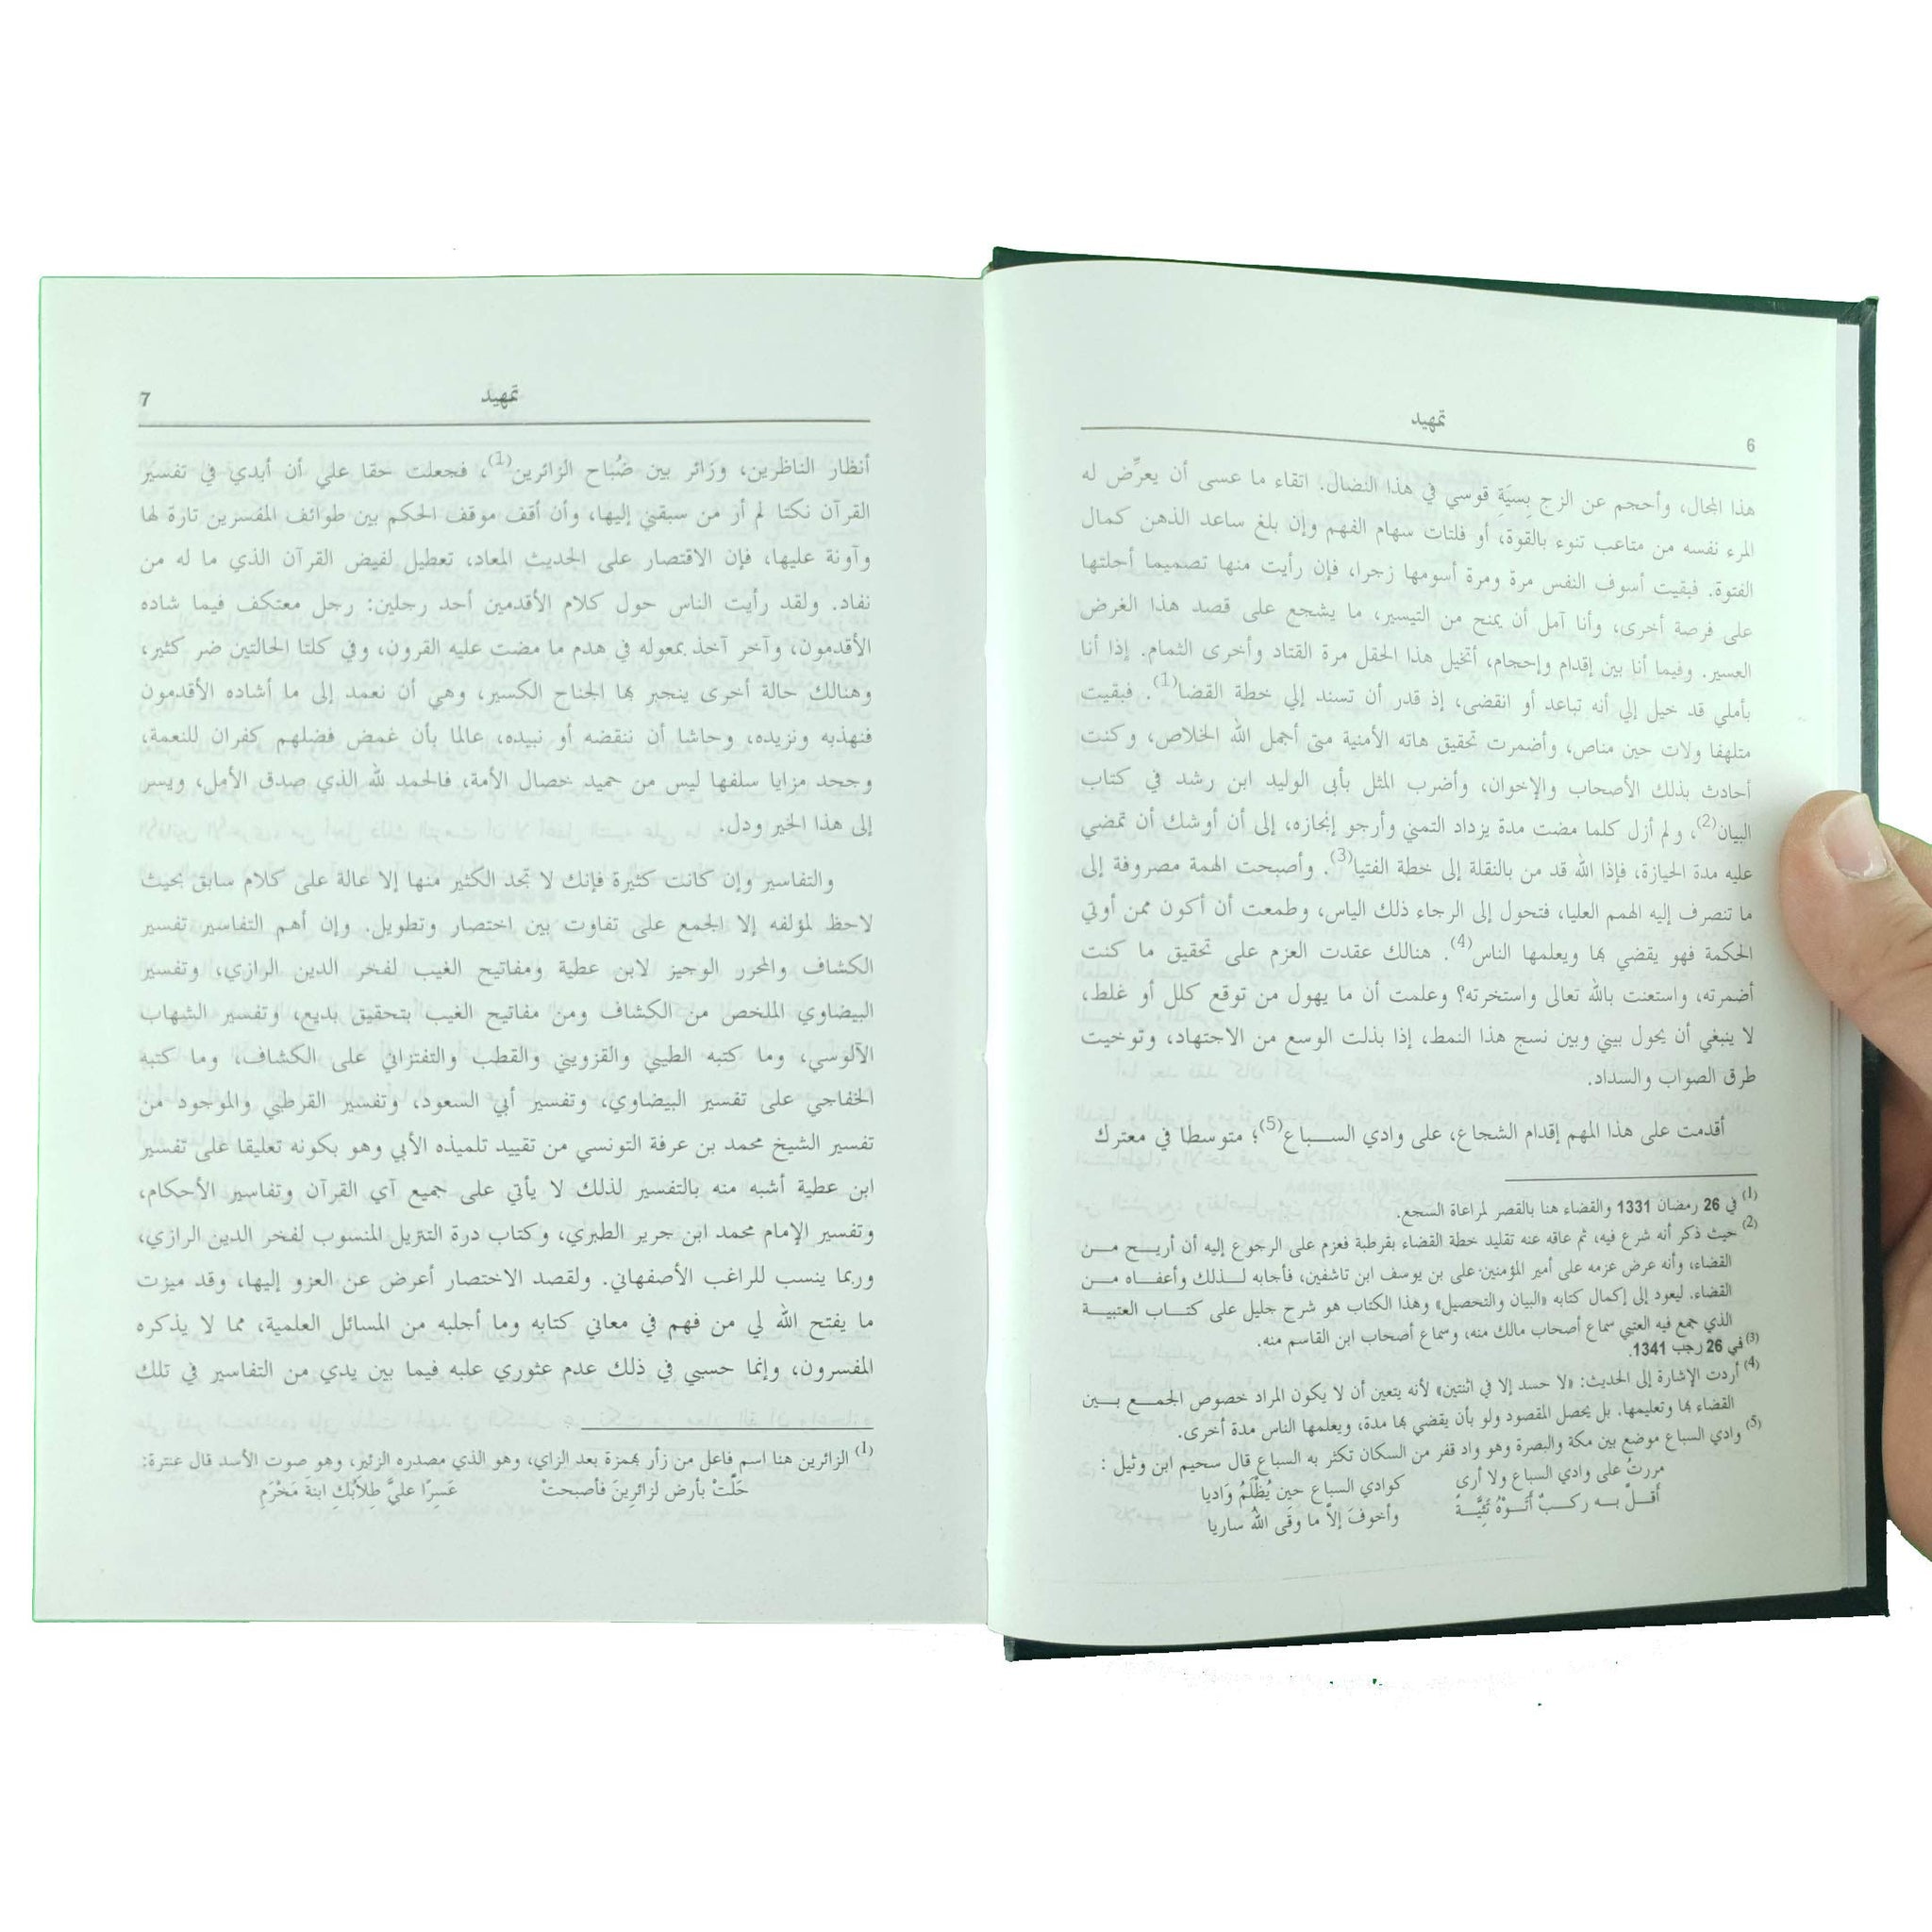 تمهيد
6
هذا المجال، وأحجم عن الزج بِسيَةِ قوسي في هذا النضال. اتقاء ما عسى أن يعرِّض له
المرء نفسه من متاعب تنوء بالقوة، أو فلتات سهام الفهم وإن بلغ ساعد الذهن كمال
الفتوة. فبقيت أسوف النفس مرة ومرة أسومها زجرا، فإن رأيت منها تصميما أحلتها
على فرصة أخرى، وأنا آمل أن يمنح من التيسير، ما يشجع على قصد هذا الغرض
العسير. وفيما أنا بين إقدام وإحجام، أتخيل هذا الحقل مرة القتاد وأخرى الثمام. إذا أنا
بأملي قد خيل إلي أنه تباعد أو انقضى، إذ قدر أن تسند إلي خطة القضا(1). فبقيت
متلهفا ولات حين مناص، وأضمرت تحقيق هاته الأمنية متى أجمل الله الخلاص، وكنت
أحادث بذلك الأصحاب والإخوان، وأضرب المثل بأبي الوليد ابن رشد في كتاب
البيان(2)، ولم أزل كلما مضت مدة يزداد التمني وأرجو إنجازه، إلى أن أوشك أن تمضي
عليه مدة الحيازة، فإذا الله قد من بالنقلة إلى خطة الفتيا(3). وأصبحت الهمة مصروفة إلى
ما تنصرف إليه الهمم العليا، فتحول إلى الرجاء ذلك الياس، وطمعت أن أكون ممن أوتي
الحكمة فهو يقضي بها ويعلمها الناس(4). هنالك عقدت العزم على تحقيق ما كنت
أضمرته، واستعنت بالله تعالى واستخرته؟ وعلمت أن ما يهول من توقع كلل أو غلط،
لا ينبغي أن يحول بيني وبين نسج هذا النمط، إذا بذلت الوسع من الاجتهاد، وتوخيت
طرق الصواب والسداد.
أقدمت على هذا المهم إقدام الشجاع، على وادي الســباع(5)؛ متوسطا في معترك
(1) في 26 رمضان 1331 والقضاء هنا بالقصر لمراعاة السجع.
(2) حيث ذكر أنه شرع فيه، ثم عاقه عنه تقليد خطة القضاء بقرطبة فعزم على الرجوع إليه أن أريـــح مـــن
القضاء، وأنه عرض عزمه على أمير المؤمنين على بن يوسف ابن تاشفين، فأجابه لـــذلك وأعفـــاه مـــن
القضاء. ليعود إلى إكمال كتابه «البيان والتحصيل» وهذا الكتاب هو شرح جليل على كتـــاب العتبيـــة
الذي جمع فيه العتبي سماع أصحاب مالك منه، وسماع أصحاب ابن القاسم منه.
(3) في 26 رجب 1341.
(4) أردت الإشارة إلى الحديث: «لا حسد إلا في اثنتين» لأنه يتعين أن لا يكون المراد خصوص الجمـــع بـــين
القضاء بها وتعليمها. بل يحصل المقصود ولو بأن يقضي بها مدة، ويعلمها الناس مدة أخرى.
(5) وادي السباع موضع بين مكة والبصرة وهو واد قفر من السكان تكثر به السباع قال سحيم ابن وثيل :
مررتُ على وادي السباع ولا أرى كوادي السباع حين يُظْلَمُ وَاديا
أَقـــلَّ بـــه ركـــبٌ أَتَـــوْهُ تَئِيَّـــةً وأخوفَ إلاّ ما وقَى اللهُ ساريا
تمهيد
7
أنظار الناظرين، وزائر بين ضُباح الزائرين(1)، فجعلت حقا علي أن أبدي في تفسير
القرآن نكتا لم أر من سبقني إليها، وأن أقف موقف الحكم بين طوائف المفسرين تارة لها
وآونة عليها، فإن الاقتصار على الحديث المعاد، تعطيل لفيض القرآن الذي ما له من
نفاد. ولقد رأيت الناس حول كلام الأقدمين أحد رجلين: رجل معتكف فيما شاده
الأقدمون، وآخر آخذ بمعوله في هدم ما مضت عليه القرون، وفي كلتا الحالتين ضر كثير،
وهنالك حالة أخرى ينجبر بها الجناح الكسير، وهي أن نعمد إلى ما أشاده الأقدمون
فنهذبه ونزيده، وحاشا أن ننقضه أو نبيده، عالما بأن غمض فضلهم كفران للنعمة،
وجحد مزايا سلفها ليس من حميد خصال الأمة، فالحمد لله الذي صدق الأمل، ويسر
إلى هذا الخير ودل.
والتفاسير وإن كانت كثيرة فإنك لا تجد الكثير منها إلا عالة على كلام سابق بحيث
لاحظ لمؤلفه إلا الجمع على تفاوت بين اختصار وتطويل. وإن أهم التفاسير تفسير
الكشاف والمحرر الوجيز لابن عطية ومفاتيح الغيب لفخر الدين الرازي، وتفسير
البيضاوي الملخص من الكشاف ومن مفاتيح الغيب بتحقيق بديع، وتفسير الشهاب
الآلوسي، وما كتبه الطيبي والقزويني والقطب والتفتزاني على الكشاف، وما كتبه
الخفاجي على تفسير البيضاوي، وتفسير أبي السعود، وتفسير القرطبي والموجود من
تفسير الشيخ محمد بن عرفة التونسي من تقييد تلميذه الأبي وهو بكونه تعليقا على تفسير
ابن عطية أشبه منه بالتفسير لذلك لا يأتي على جميع آي القرآن وتفاسير الأحكام،
وتفسير الإمام محمد ابن جرير الطبري، وكتاب درة التتريل المنسوب لفخر الدين الرازي،
وربما ينسب للراغب الأصفهاني. ولقصد الاختصار أعرض عن العزو إليها، وقد ميزت
ما يفتح الله لي من فهم في معاني كتابه وما أجلبه من المسائل العلمية، مما لا يذكره
المفسرون، وإنما حسبي في ذلك عدم عثوري علبه فيما بين يدي من التفاسير في تلك
(1) الزائرين هنا اسم فاعل من زأر بهمزة بعد الزاي، وهو الذي مصدره الزئير، وهو صوت الأسد قال عنترة:
حَلّتْ بأرض لزائرِينَ فأصبحتْ عَسِرًا عليَّ طِلاَبُكِ ابنةَ مَخْرَمِ